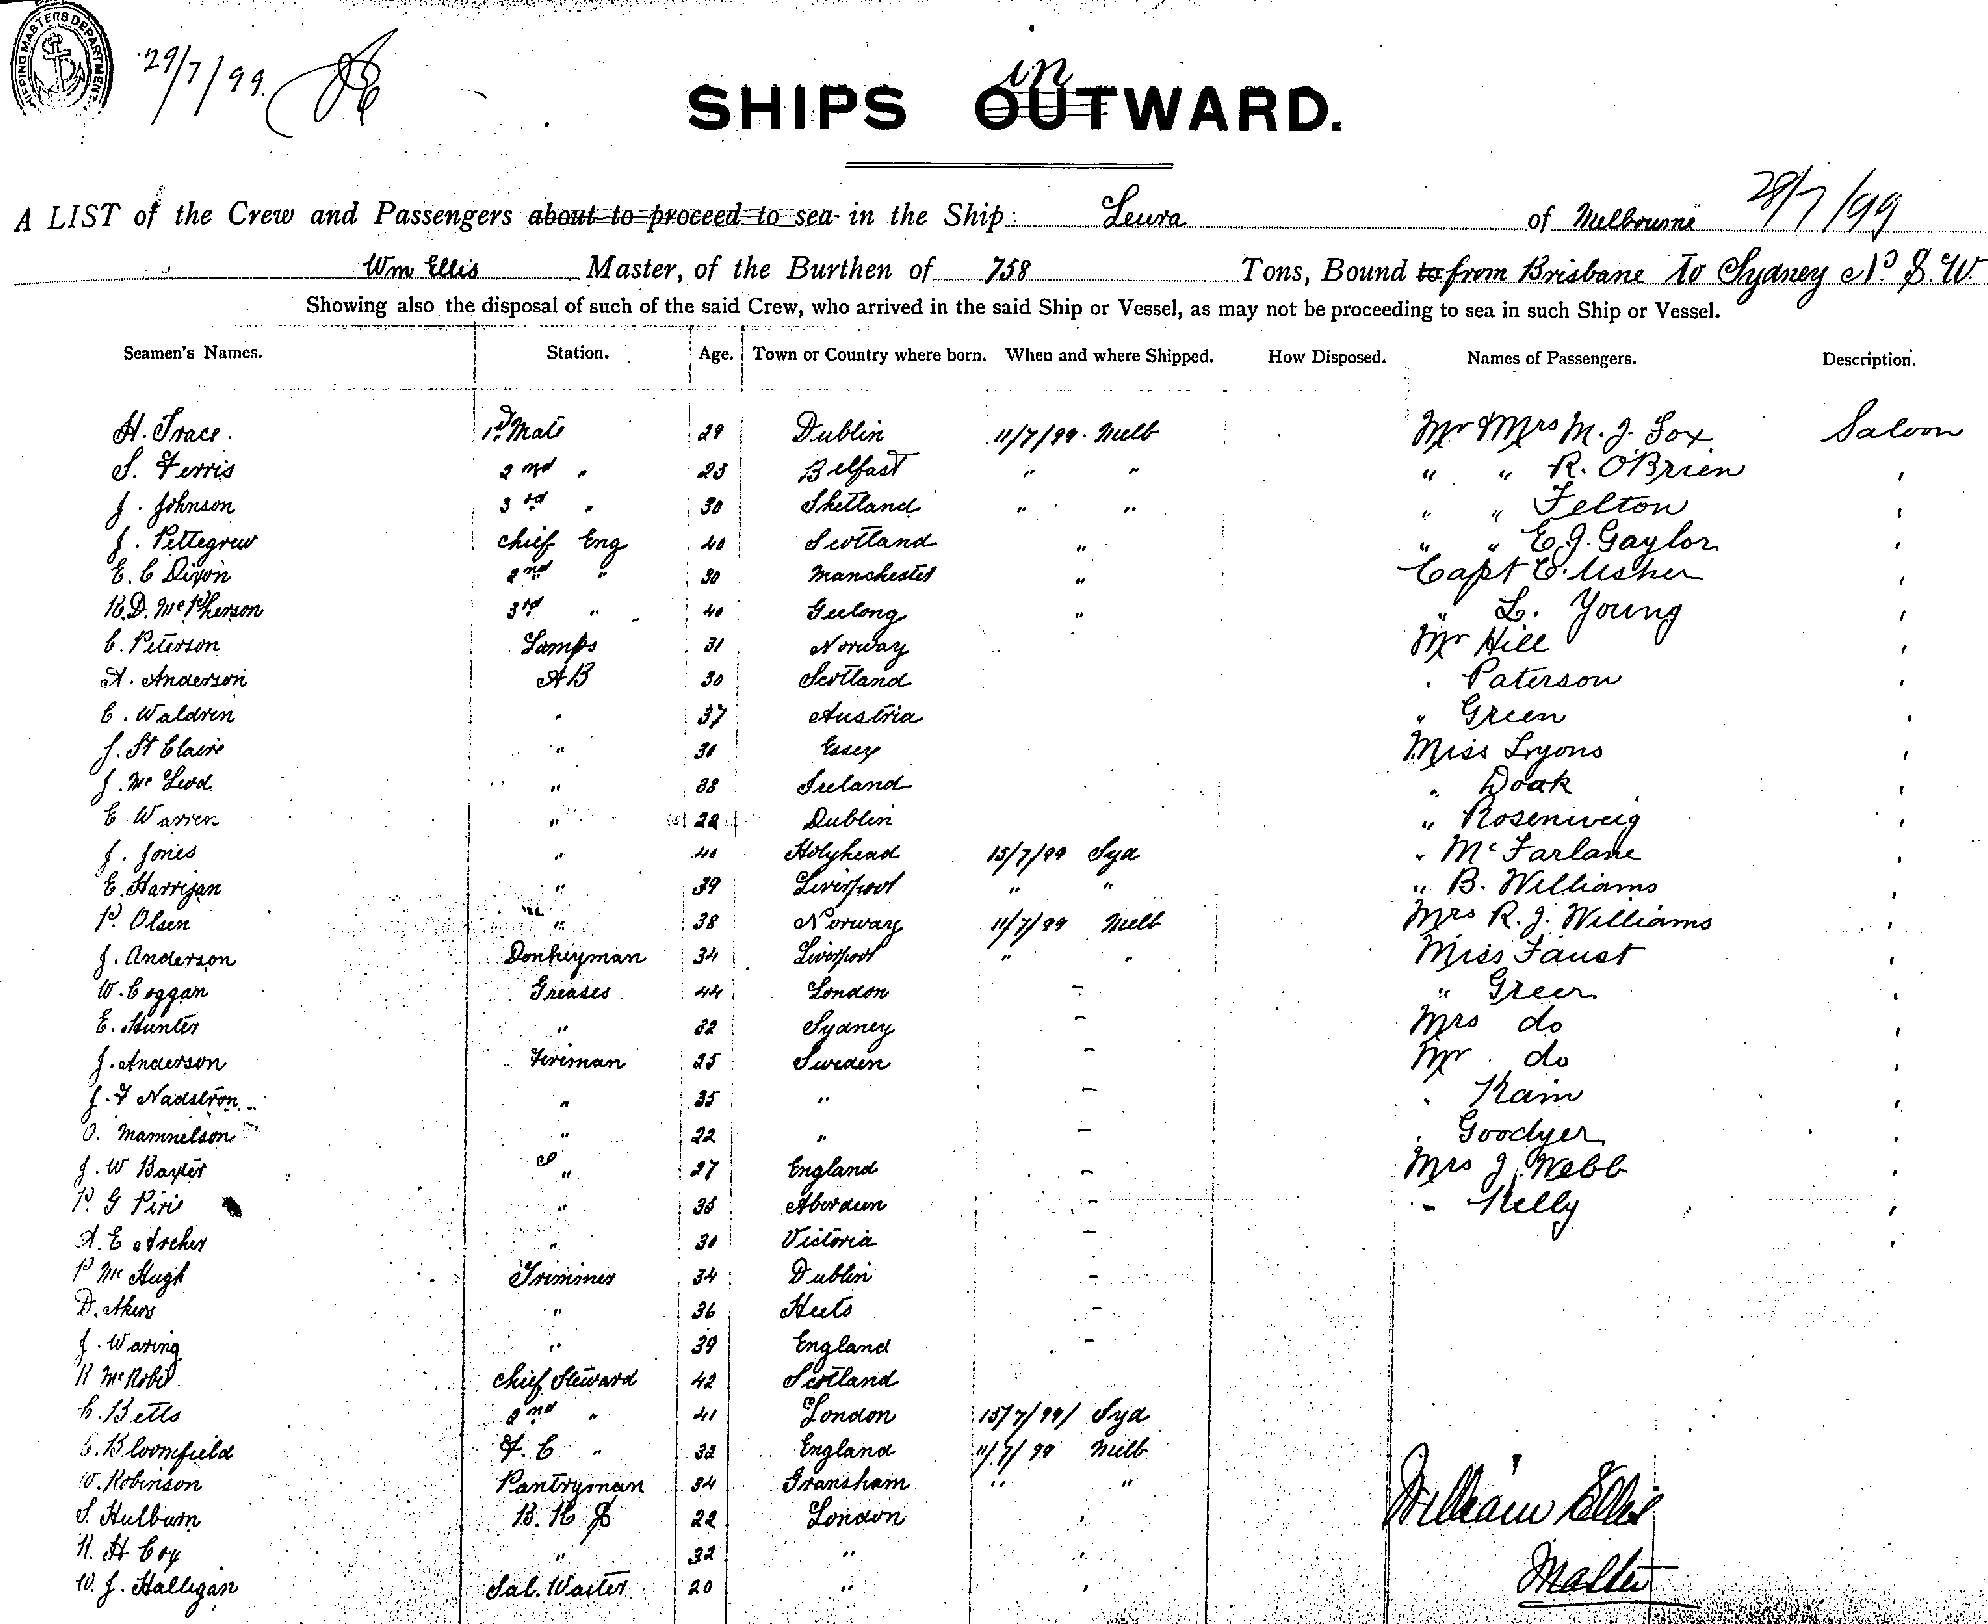 SHIPPING MASTERS DEPARTMENT
29/7/99.
in
SHIPS OUTWARD.
A LIST of the Crew and Passengers about to proceed to sea in the Ship Leura of Melbourne 28/7/99
Wm Ellis Master, of the Burthen of 758 Tons, Bound to from Brisbane To Sydney N S. W.
Showing also the disposal of such of the said Crew, who arrived in the said Ship or Vessel, as may not be proceeding to sea in such Ship or Vessel.
Seamen's Names. Station. Age. Town or Country where born. When and where Shipped. How Disposed. Names of Passengers. Description.
H. Trace. 1st Mate 29 Dublin 11/7/99. Melb Mr & Mrs M. J. Fox Saloon
S. Ferris 2nd " 23 Belfast " " " " R. O'Brien "
J. Johnson 3rd " 30 Shetland " " " " Felton "
J. Pettegrew Chief Eng 40 Scotland " " " E. J. Gaylor "
E. C Dixon 2nd " 30 Manchester " Capt E. Usher "
R. D. McPherson 3rd " 40 Geelong " " L. Young "
C. Peterson Lamps 31 Norway Mr Hill "
A. Anderson AB 30 Scotland " Paterson "
C. Waldren " 37 Austria " Green "
J. St Claire " 30 Essex Miss Lyons "
J. Mc Leod " 38 Ireland " Doak "
E Warren " 22 Dublin " Rosenweig "
J. Jones " 40 Holyhead 15/7/99 Syd " McFarlane "
E. Harrigan " 39 Liverpool " " " B. Williams "
P. Olsen " 38 Norway 11/7/99 Melb Mrs R. J. Williams "
J. Anderson Donkeyman 34 Liverpool " " Miss Faust "
W. Coggan Greases 44 London " " Greer "
E. Hunter " 32 Sydney " Mrs do "
J. Anderson Fireman 25 Sweden " Mr do "
J. F Nadstron " 35 " " " Kain "
O. Mamnelson " 22 " " " Goodyer "
J. W Baxter " 27 England " Mrs J. Webb "
P. G Pirie " 35 Aberdeen " " Kelly "
A. E Archer " 30 Victoria " "
P Mc Hugh Trimmer 34 Dublin "
D. Akers " 36 Heets "
J. Waring " 39 England "
R McRobie Chief Steward 42 Scotland
C. Betts 2nd " 41 London 15/7/99 Syd
C. Bloomfield F. C " 32 England 11/7/99 Melb
W. Robinson Pantryman 34 Gransham " "
S. Hulburn B. K 22 London "
R. H Coy " 32 " "
W. J. Halligan Sal. Waiter 20 " "
William Ellis
Master